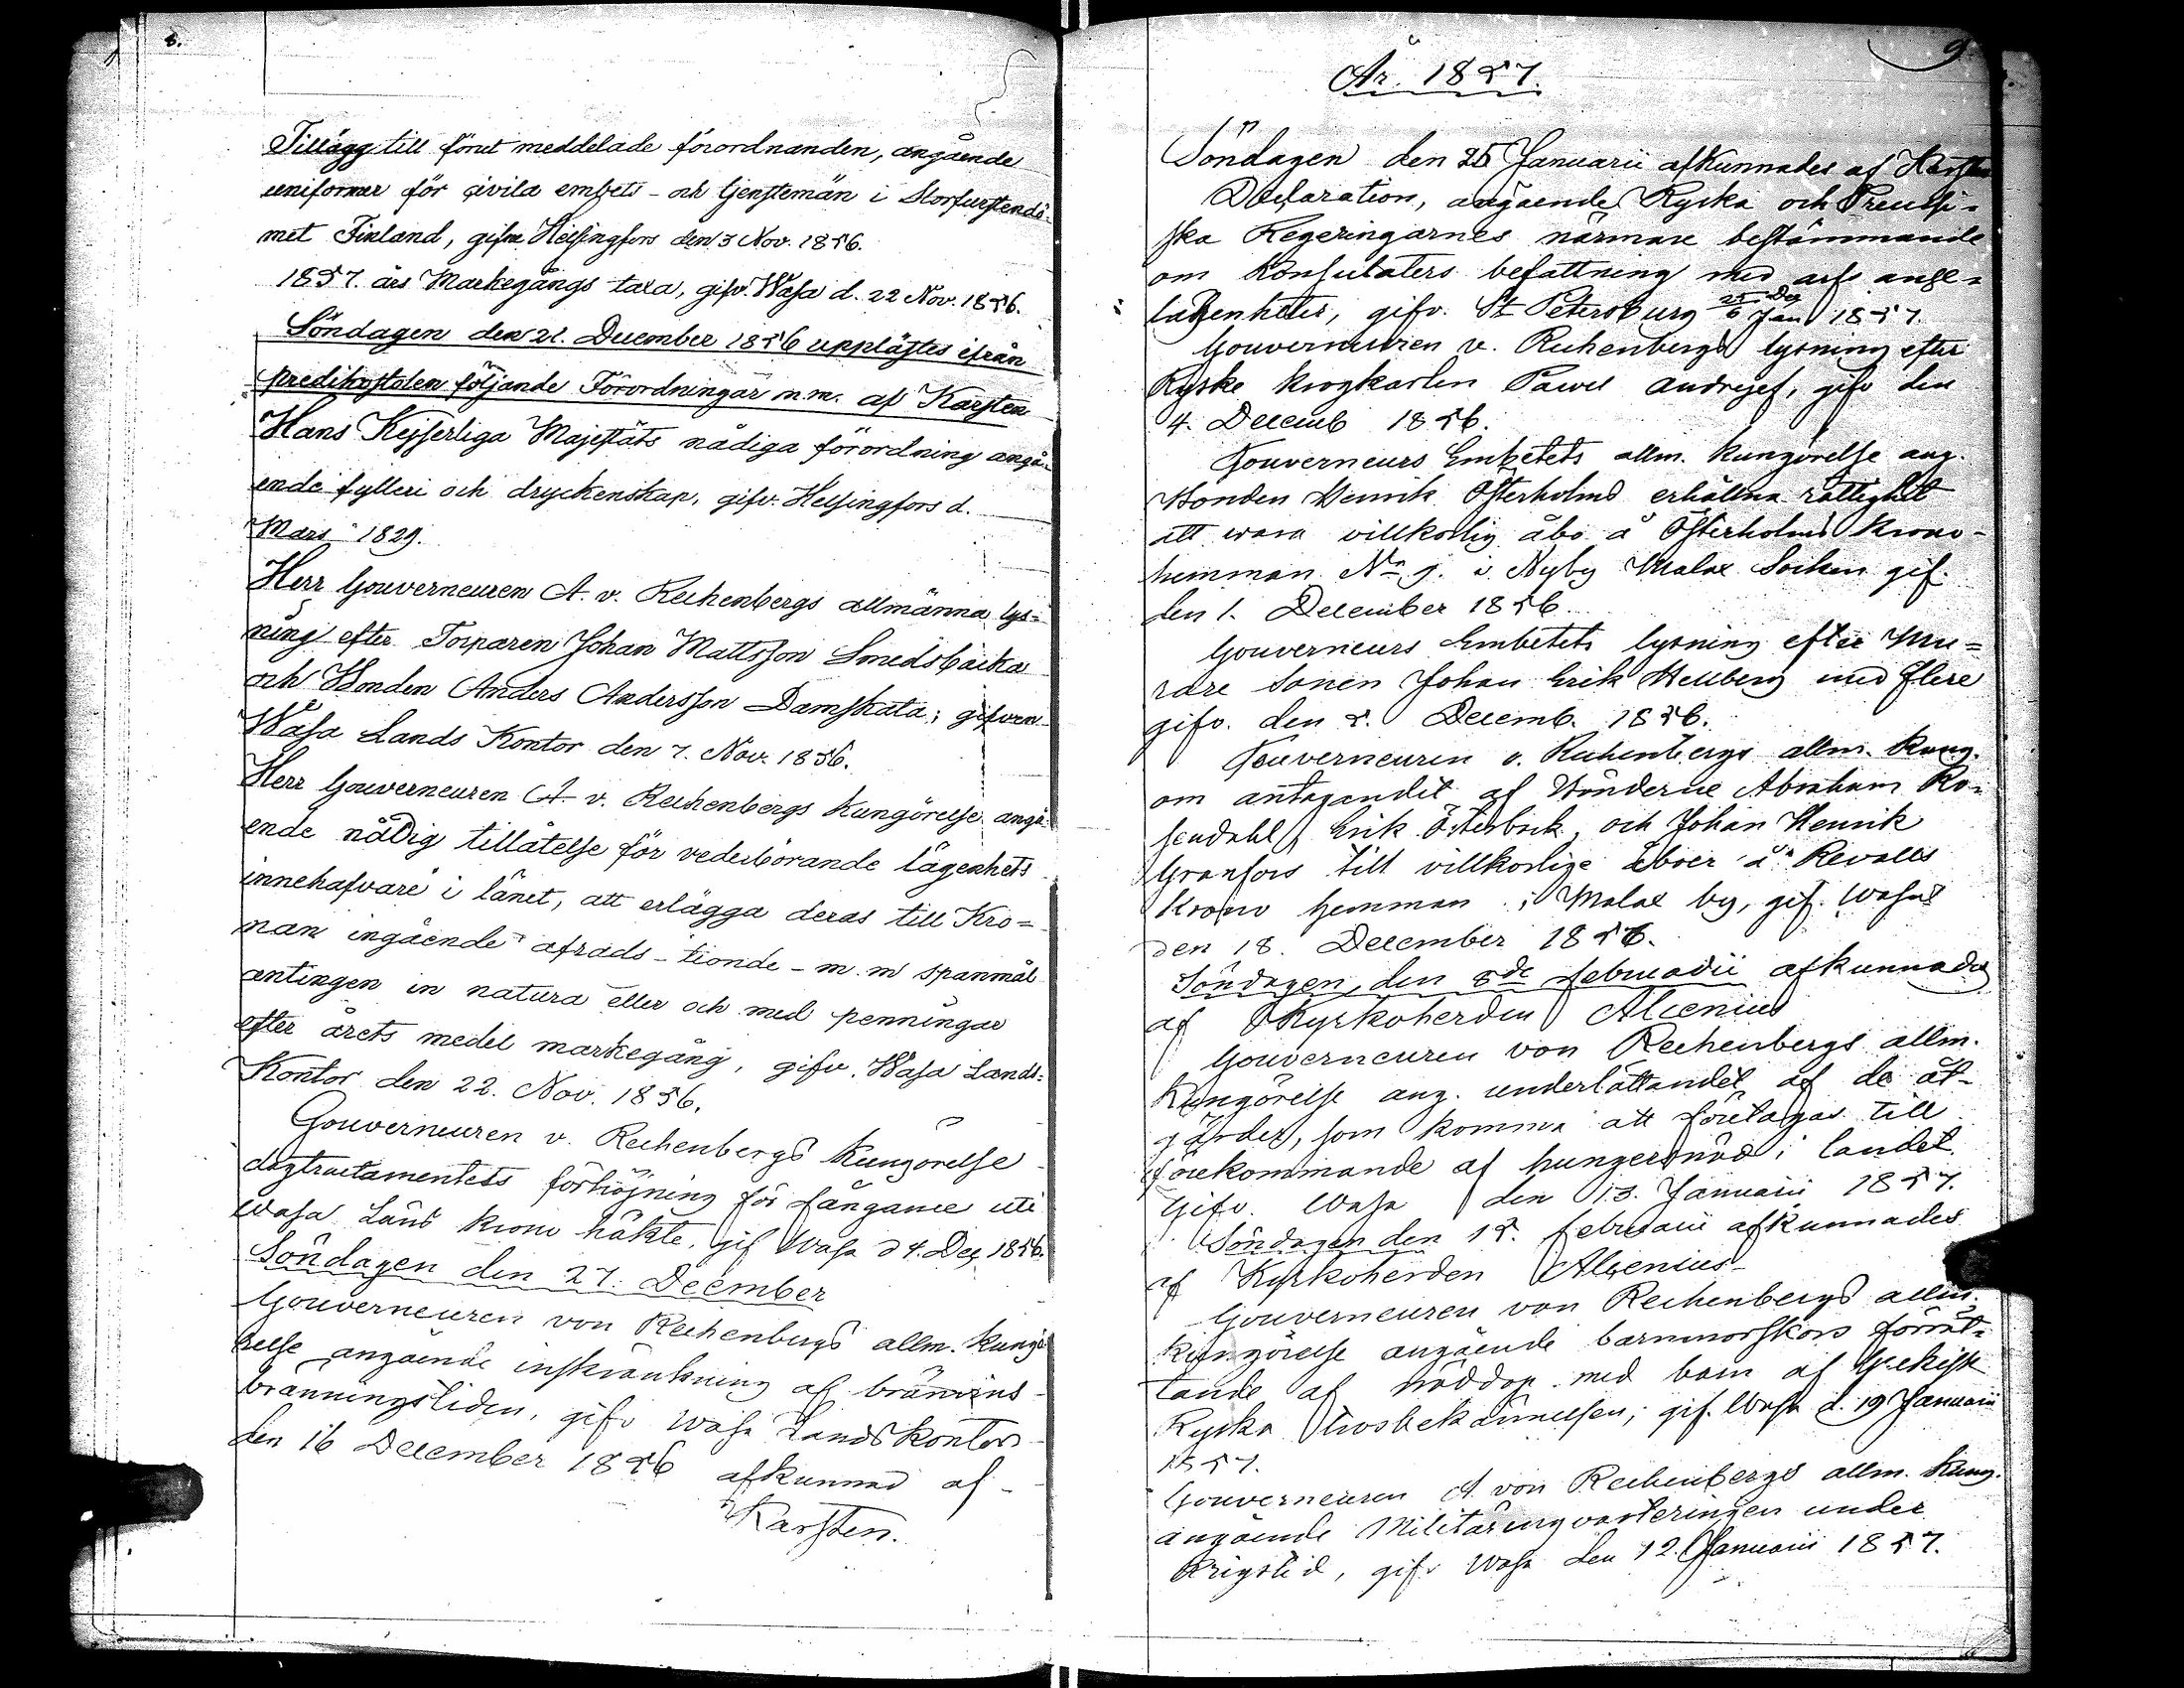 8.
Tillägg till förut meddelade förordnanden, angående
uniformer för civila embets- och tjenstemän i Storfurstendö-
met Finland, gifne Helsingfors den 3 Nov. 1856.
1857. års Markegångs taxa, gifv. Wasa d. 22 Nov. 1856.
Söndagen den 21. December 1856 upplästes ifrån
predikostolen följande Förordningar m.m. af Karsten
Hans Kejserliga Majestäts nådiga förordning angå-
ende fylleri och dryckenskap, gifv. Helsingfors d.
Mars 1829.
Herr Gouverneuren A. v. Rechenbergs allmänna lys=
ning efter Torparen Johan Mattsson Smedsbacka
och Bonden Anders Andersson Damskata; gifven
Wasa Lands Kontor den 7. Nov. 1856.
Herr Gouverneuren A. v. Rechenbergs Kungörelse angå-
ende nådig tillåtelse för vederbörande lägenhets
innehafvare i länet, att erlägga deras till Kro=
nan ingående afrads- tionde- m.m spanmål
antingen in natura eller och med penningar
efter årets medel markegång, gifv. Wasa Lands=
Kontor den 22. Nov. 1856.
Gouverneuren v. Rechenbergs Kungörelse
dagtractamentets förhöjning för fångarne uti
Wasa Läns krono häkte, gif Wasa d 4. Dec 1856.
Söndagen den 27. December
Gouverneuren von Rechenbergs allm. kungö
relse angående inskränkning af bränvins-
bränningstiden, gifv Wasa Lands kontor
den 16 December 1856 afkunnad af
Karsten.
9
År 1857.
Söndagen den 25 Januarii afkunnades af Karsten
Declaration, angående Ryska och Preussi-
ska Regeringarnes närmare bestämmande
om Konsulaters befattning med arfs ange-
lägenheter, gifv. St Petersburg 25 Dec / 6 Jan 1857.
Gouverneuren v. Rechenbergs lysning efter
Ryske krogkarlen Pawel Andrejef, gifv den
4. Decemb 1856.
Gouverneurs Embetets allm. kungörelse ang.
Bonden Henrik Österholms erhållna rättighet
att wara villkorlig åbo å Österholms krono-
hemman No j. i Nyby Malax Socken gif.
den 1. December 1856.
Gouverneurs Embetets lysning efter Mu=
rare sonen Johan Erik Hellberg med flere
gifv. den 5. Decemb. 1856.
Gouverneuren v. Rechenbergs allm. kung.
om antagandet af Bönderne Abraham Ro-
sendahl, Erik Österback, och Johan Henrik
Granfors till villkorlige åboer å Revalls
Krono hemman i Malax by, gif. Wasa
den 18. December 1856.
Söndagen, den 8de februarii afkunnades
af Kyrkoherden Alcenius
Gouverneuren von Rechenbergs allm.
Kungörelse ang. underlättandet af de åt-
gärder, som komma att företagas till
förekommande af hungersnöd i landet.
Gifv. Wasa den 13. Januarii 1857.
Söndagen den 15. februarii afkunnades
af Kyrkoherden Alcenius-
Gouverneuren von Rechenbergs allm.
Kungörelse angående barnmorskors förrät-
tande af nöddop med barn af Grekisk
Ryska trosbekännelsen; gif. Wasa d. 19 Januarii
1857.
Gouverneuren A von Rechenbergs allm. Kung.
angående Militärinqvarteringen under
Krigstid, gifv Wasa den 12. Januarii 1857.